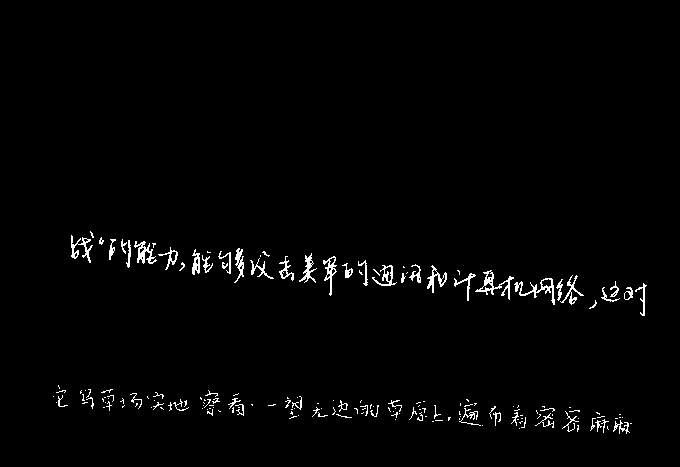 战”的能力,能够攻击美军的通讯和计算机网络,这对
它与草场实地察看.一望无边的草原上,遍布着密密麻麻